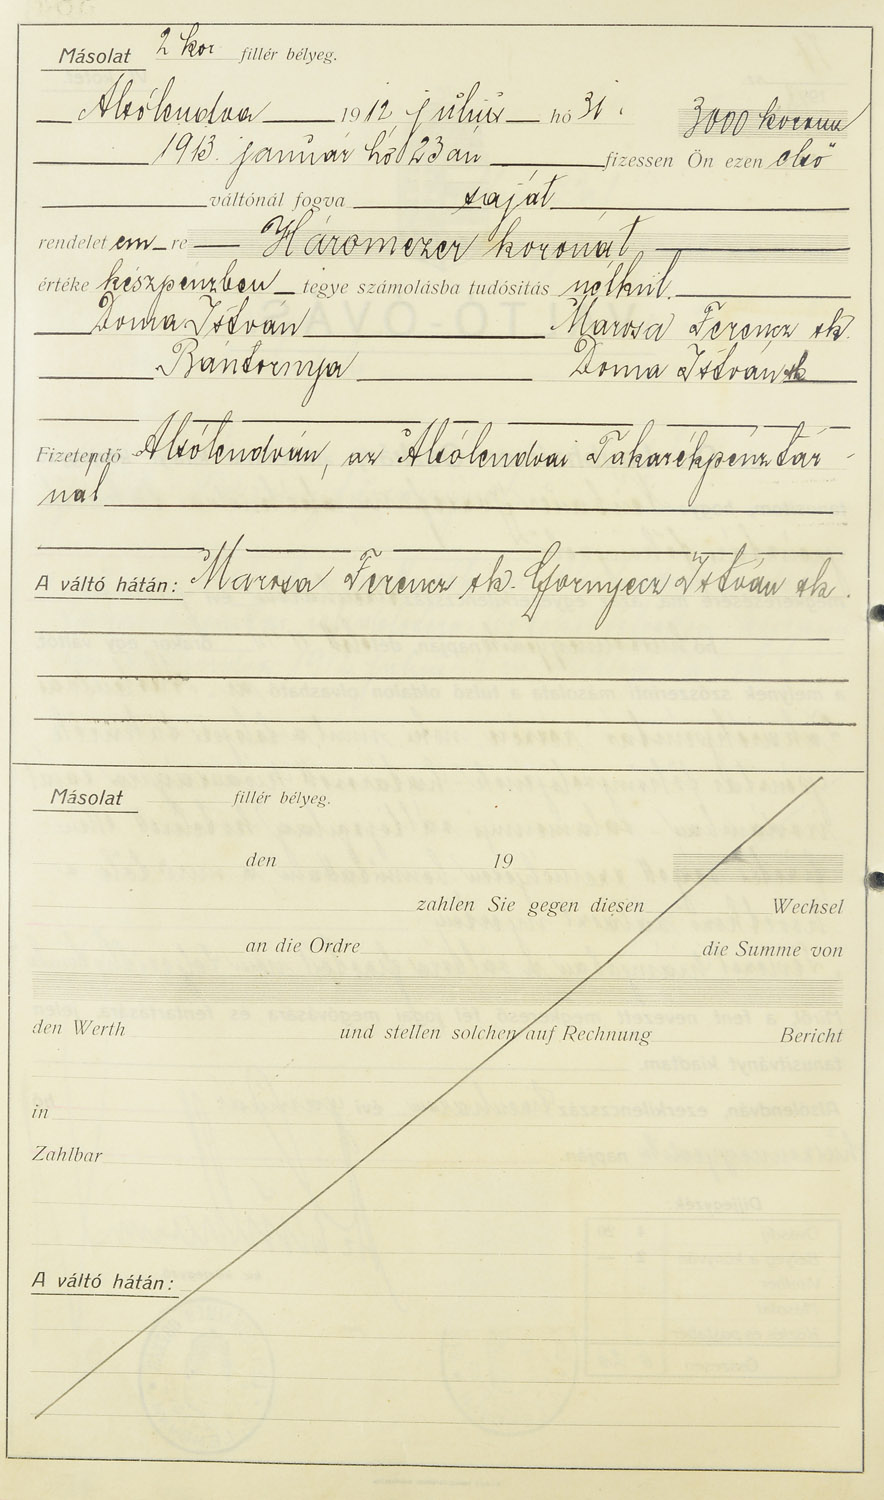 Másolat 2 kor fillér bélyeg.
Alsólendva 1912 július hó 31. 3000 korona
1913. január hó 23án fizessen Ön ezen első
váltónál fogva saját
rendelet em re Háromezer koronát
értéke készpénzben tegye számolásba tudósítás nélkül.
Doma István Marosa Ferencz sk.
Bántornya Doma István sk
Fizetendő Alsólendván, az Alsólendvai Takarékpénztár-
nál
A váltó hátán: Marosa Ferencz sk. Gornyecz István sk.
Másolat fillér bélyeg.
den 19
zahlen Sie gegen diesen Wechsel
an die Ordre die Summe von
den Werth und stellen solchen auf Rechnung Bericht
in
Zahlbar
A váltó hátán: